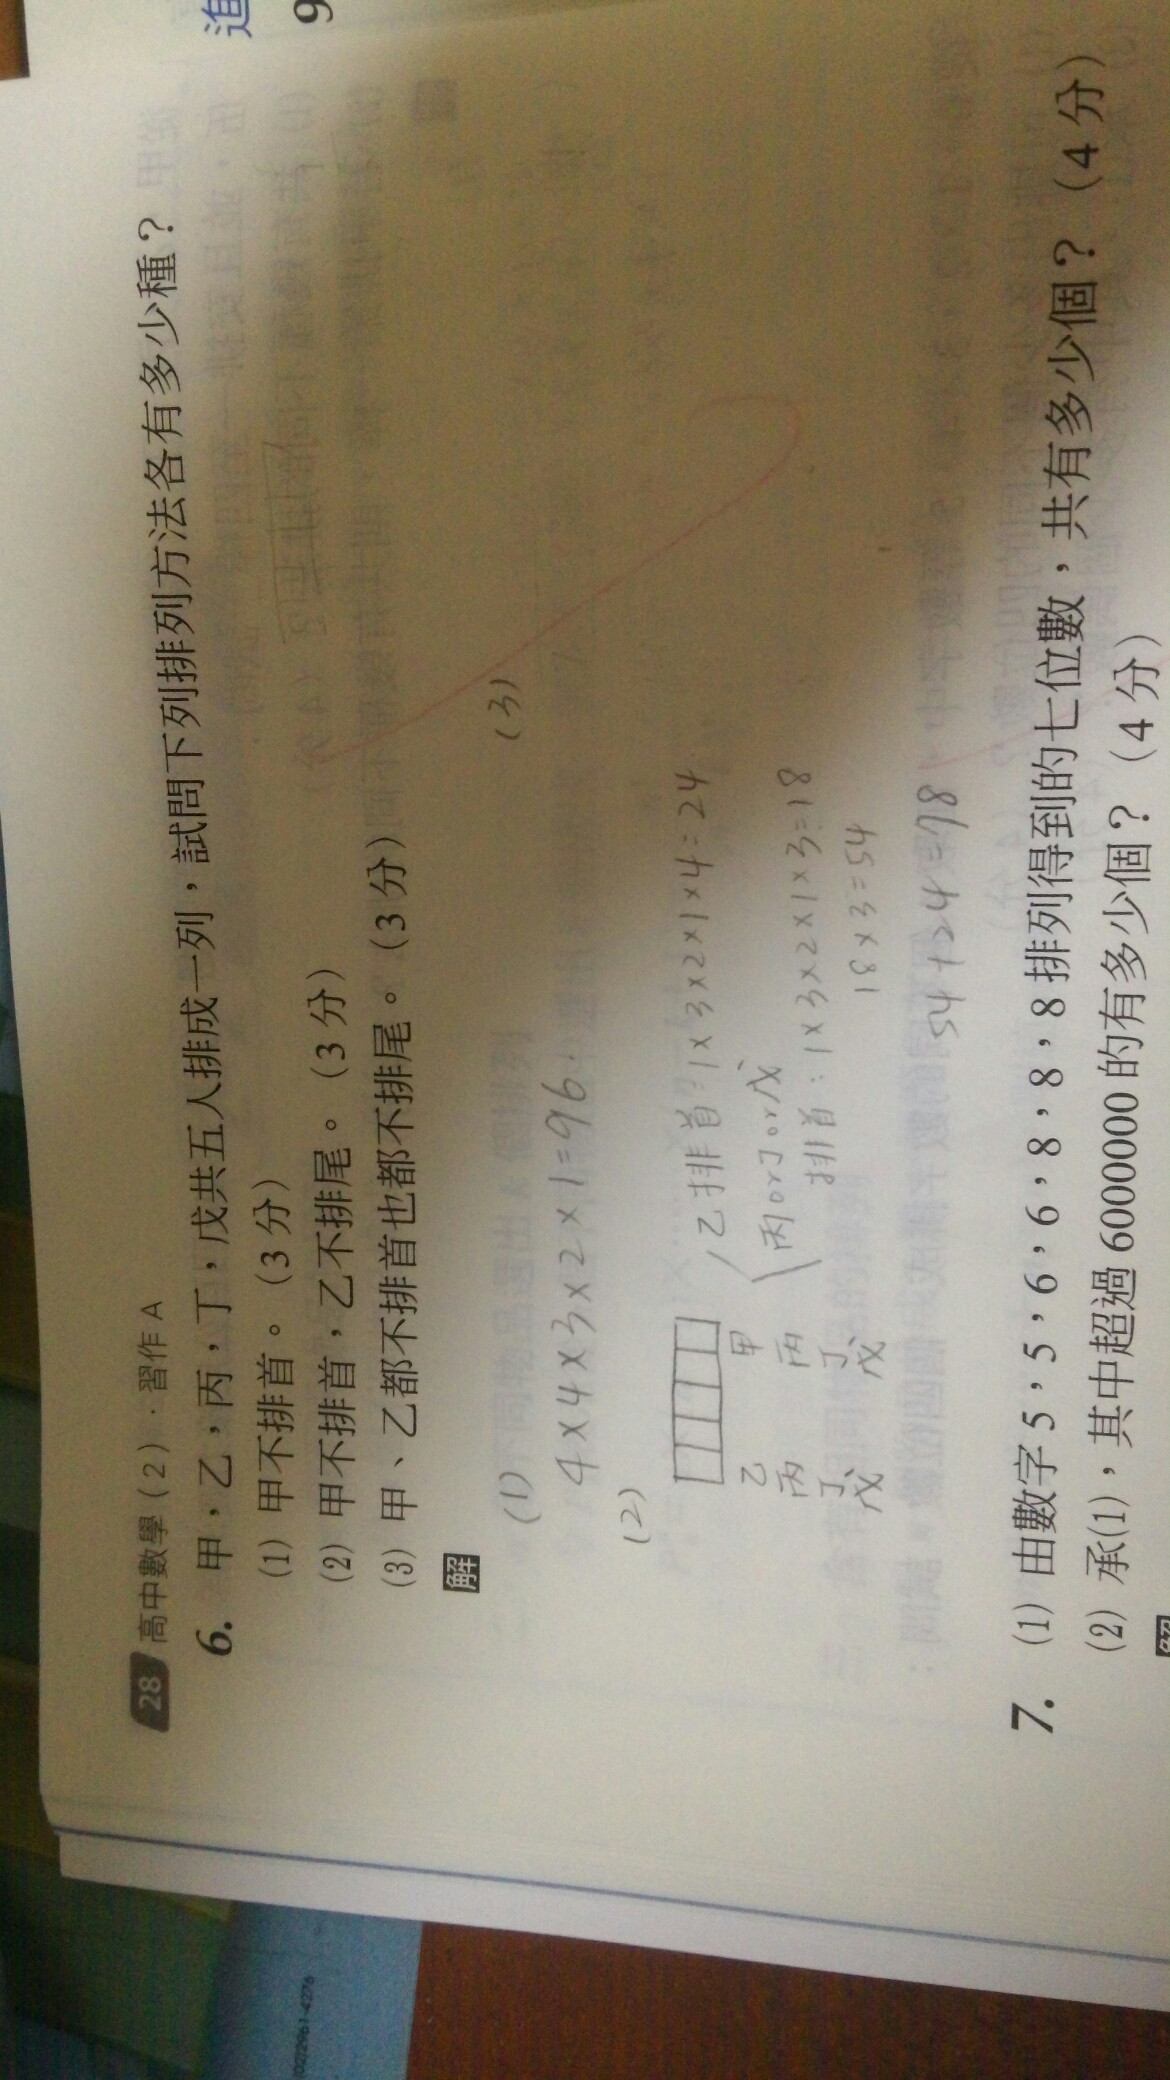 28 高中數學(2)．習作 A
6. 甲，乙，丙，丁，戊共五人排成一列，試問下列排列方法各有多少種？
(1) 甲不排首。（3 分）
(2) 甲不排首，乙不排尾。（3 分）
(3) 甲、乙都不排首也都不排尾。（3 分）
解
(1)
4×4×3×2×1=96.
(2)
乙 甲
丙 丙
丁 丁
戊 戊
乙排首：1×3×2×1×4=24
丙or丁or戊
排首：1×3×2×1×3=18
18×3=54
54+24=78
(3)
7. (1) 由數字 5，5，6，6，8，8，8 排列得到的七位數，共有多少個？（4 分）
(2) 承(1)，其中超過 6000000 的有多少個？（4 分）
解
9